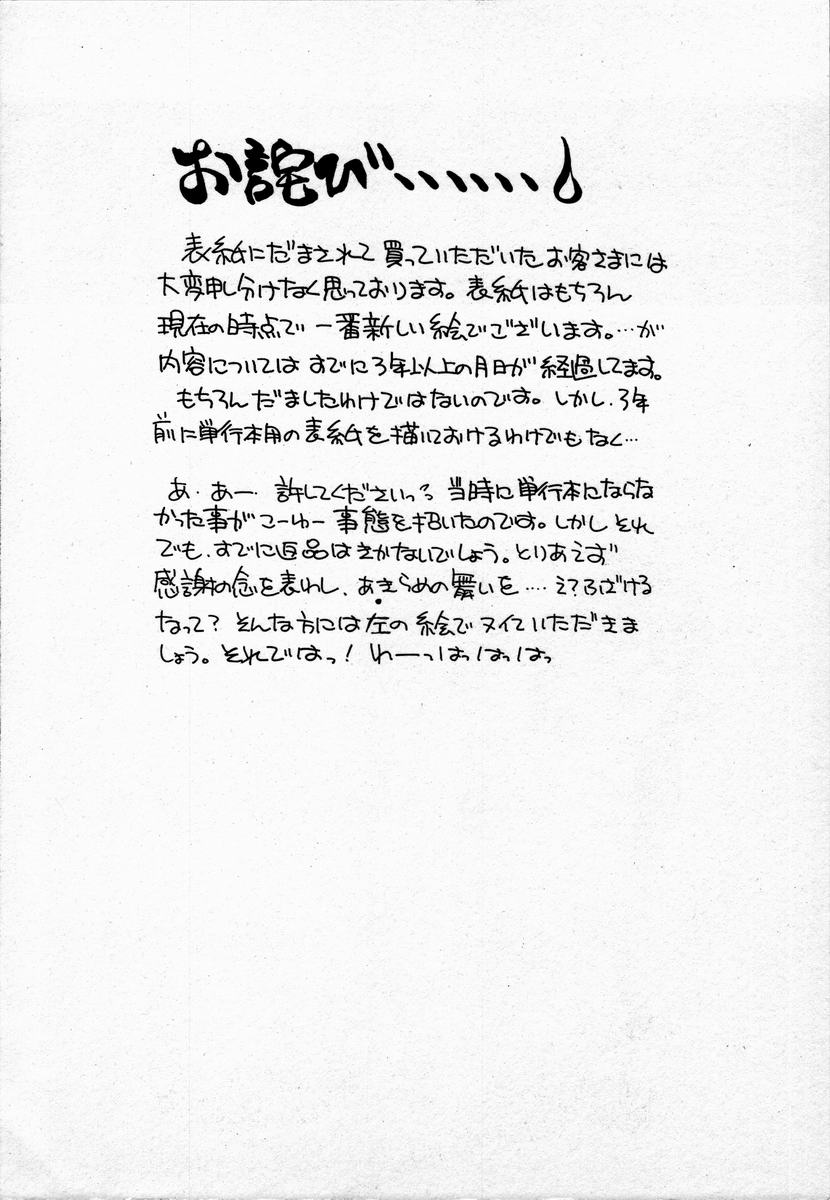 お詫び、、、、、、
表紙にだまされて買っていただいたお客さまには
大変申し分けなく思っております。表紙はもちろん
現在の時点で一番新しい絵でございます。…が
内容についてはすでに3年以上の月日が経過してます。
もちろんだましたわけではないのです。しかし、3年
前に単行本用の表紙を描いておけるわけでもなく…
あ・あー・許してくださいっ?。当時に単行本にならな
かった事がこーゆー事態を招いたのです。しかしそれ
でも、すでに返品はきかないでしょう。とりあえず
感謝の念を表わし、あきらめの舞いを…。え?ふざける
なって?そんな方には左の絵でヌイていただきま
しょう。それではっ!わーっはっはっはっ